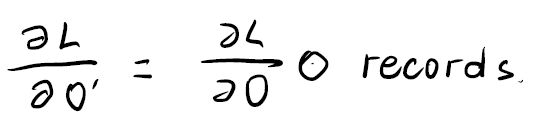 ∂L/∂O' = ∂L/∂O O records.